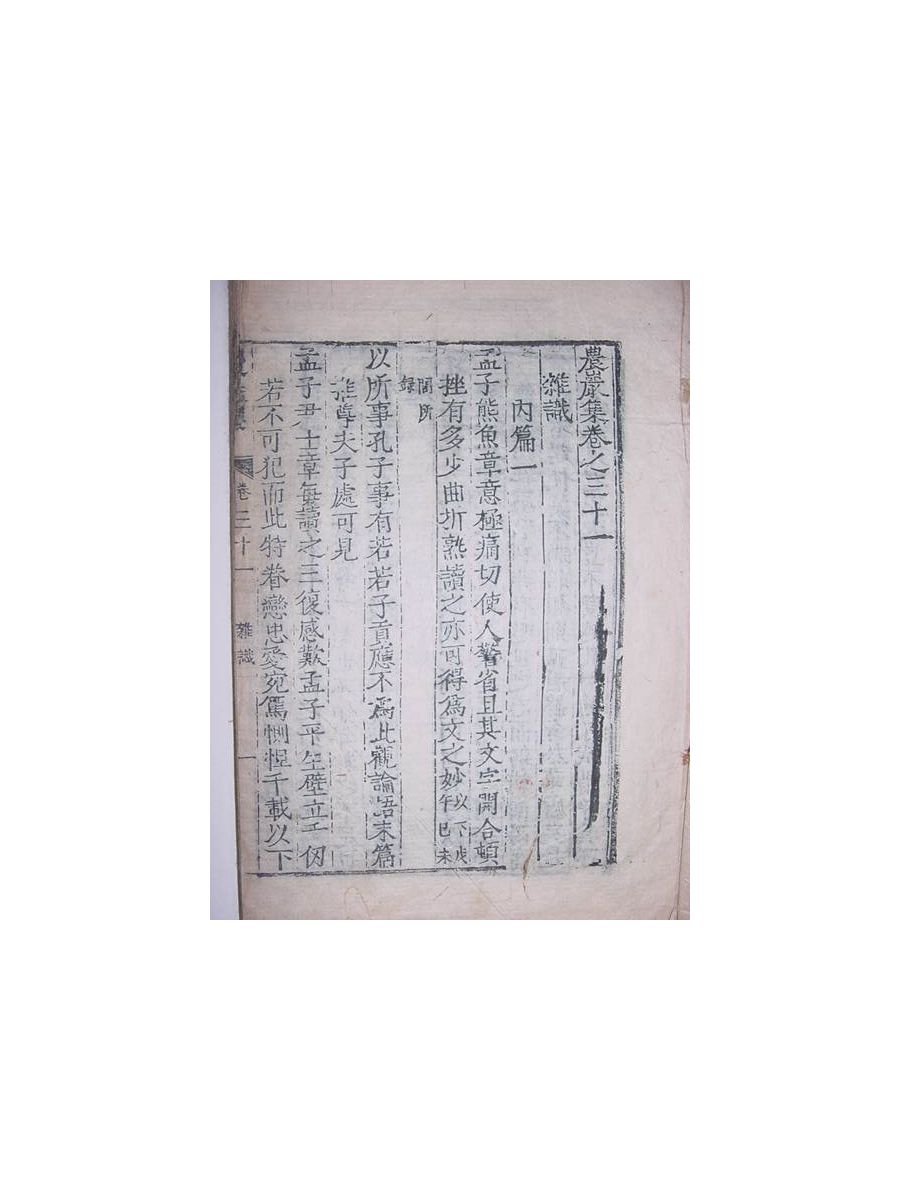 農巖集卷之三十一
雜識
內篇一
孟子熊魚章意極痛切使人警省且其文字開合頓
挫有多少曲折熟讀之亦可得爲文之妙以下戊午己未
間所錄
以所事孔子事有若子貢應不爲此觀論語末篇
推尊夫子處可見
孟子尹士章每讀之三復感歎孟子平生壁立千仞
若不可犯而此特眷戀忠愛宛篤惻怛千載以下
卷三十一
雜識
一